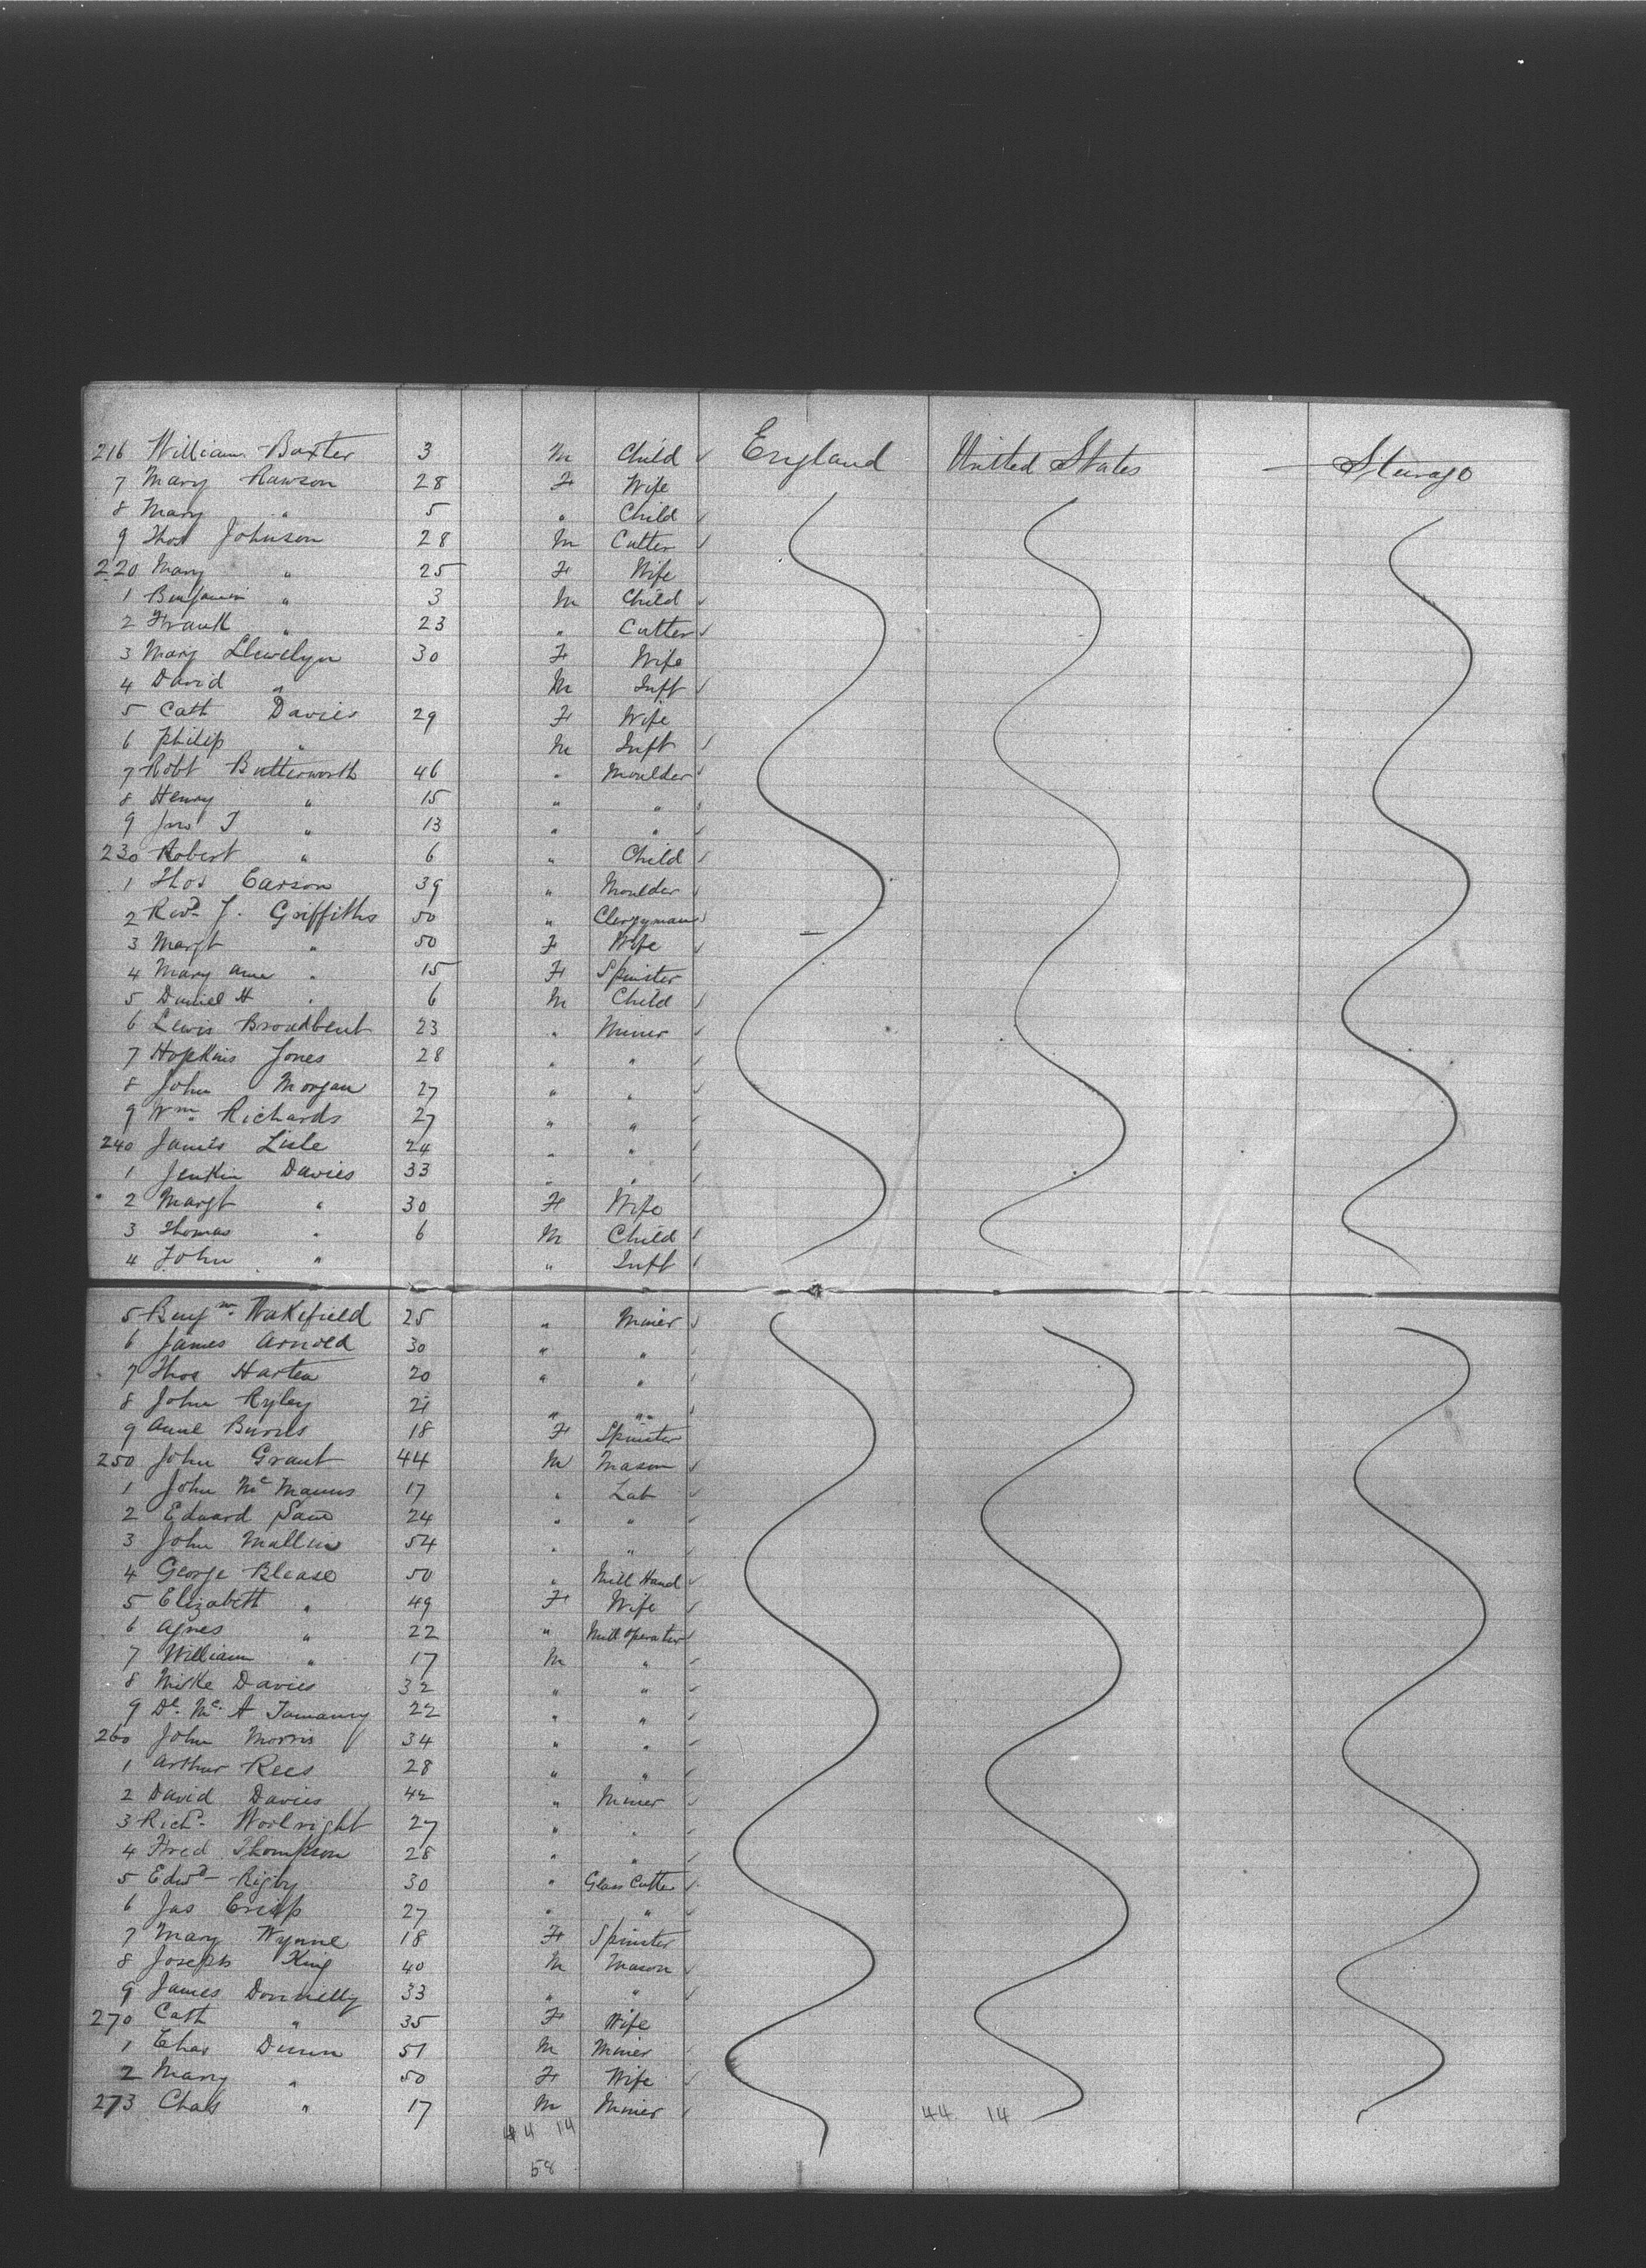 216 William Baxter 3 M Child ✓ England United States — Sturage
7 Mary Rawson 28 F Wife
8 Mary " 5 " Child ✓
9 Thos Johnson 28 M Cutter ✓
220 Mary " 25 F Wife
1 Benjamin " 3 M Child ✓
2 Frank " 23 " Cutter ✓
3 Mary Llewelyn 30 F Wife
4 David " M Inft ✓
5 Cath Davies 29 F Wife
6 Philip " M Inft ✓
7 Robt Butterworth 46 " Moulder ✓
8 Henry " 15 " " ✓
9 Jno T " 13 " " ✓
230 Robert " 6 " Child ✓
1 Thos Carson 39 " Moulder ✓
2 Revd J. Griffiths 50 " Clergyman ✓
3 Margt " 50 F Wife ✓
4 Mary Ann " 15 F Spinster
5 Daniel H " 6 M Child ✓
6 Lewis Broadbent 23 " Miner ✓
7 Hopkins Jones 28 " " ✓
8 John Morgan 27 " " ✓
9 Wm Richards 27 " " ✓
240 James Lisle 24 " " ✓
1 Jenkin Davies 33 " " ✓
2 Margt " 30 F Wife
3 Thomas " 6 M Child ✓
4 John " " Inft ✓
5 Benjn Wakefield 25 " Miner ✓
6 James Arnold 30 " " ✓
7 Thos 20 " " ✓
8 John Ryley 21 " " ✓
9 Anne Burns 18 F Spinster
250 John Grant 44 M Mason ✓
1 John McManus 17 " Lab ✓
2 Edward 24 " " ✓
3 John Mallin 54 " " ✓
4 George Blease 50 " Mill Hand ✓
5 Elizabeth " 49 F Wife ✓
6 Agnes " 22 " Mill operator ✓
7 William " 17 M " ✓
8 Davies 32 " " ✓
9 22 " " ✓
260 John Morris 34 " " ✓
1 Arthur Rees 28 " " ✓
2 David Davies 42 " Miner ✓
3 Richd Woolright 27 " " ✓
4 Fred Thompson 28 " " ✓
5 Edwd Rigby 30 " Glass Cutter ✓
6 Jas Crisp 27 " " ✓
7 Mary Wynne 18 F Spinster
8 Joseph King 40 M Mason ✓
9 James Donnelly 33 " " ✓
270 Cath " 35 F Wife
1 Chas Dunn 51 M Miner
2 Mary " 50 F Wife ✓
273 Chas " 17 M Miner ✓
44 14 44 14
58